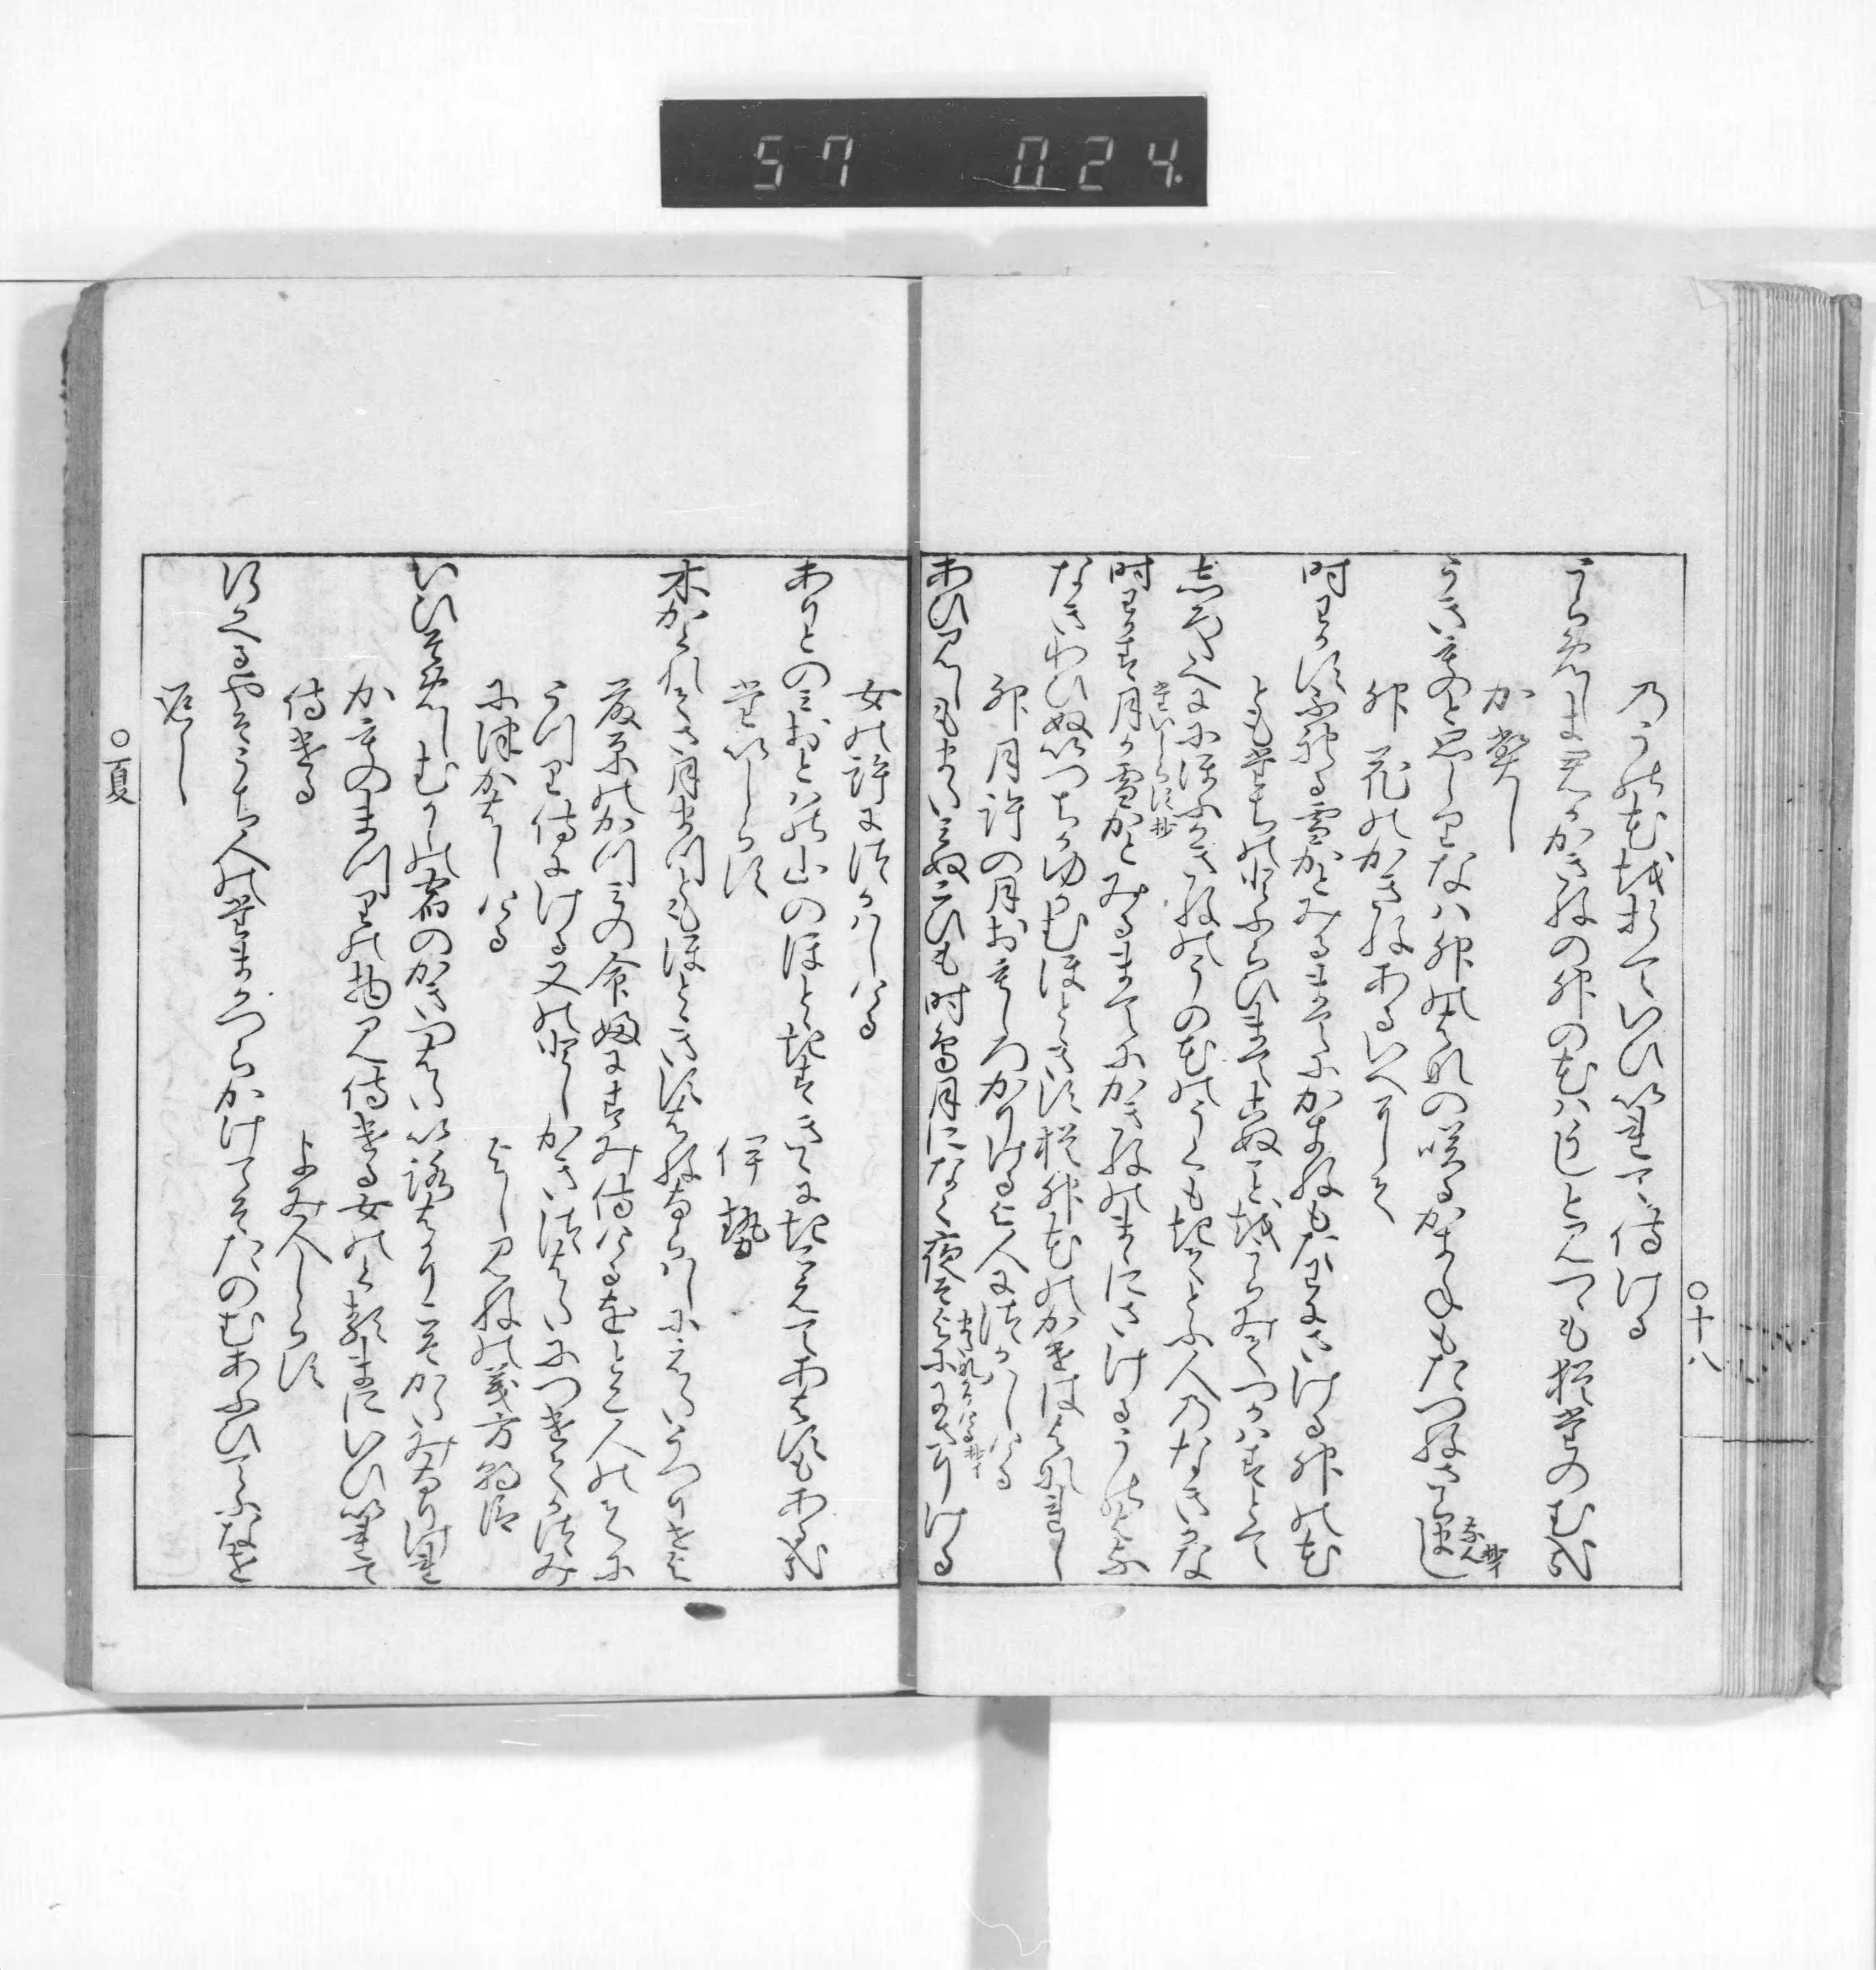 〇十八
のうの花を折ていひいれて侍ける
うらめしき君かかきねの卯の花はうしとみつも猶たのむかな
かへし
うき物と思しりなは卯のはなの咲るかきねもたつねさらまし
なん 抄イ
卯花のかきねあるいへにて
時わかすふれる雪かとみるまてにかきねもたわにさける卯の花
ともたちのとふらひまてこぬことをうらみてつかはすとて
しろたへににほふかきねのうの花のうくもきてとふ人のなきかな
題しらす抄
時わかす月か雪かとみるまてにかきねのまにさけるうの花
なきわひぬいつちかゆかむほとゝきす猶卯花のかけははなれし
卯月許の月おもしろかりける夜人につかはしける
あひみしもまたみぬこひも時鳥月になく夜そよににさりける
女の許につかはしける
ありとのみおとはの山のほとゝきすきゝにきこえてあはすもあるかな
題しらす
伊勢
木かくれてさ月まつともほとゝきすはねならはしにえたうつりせよ
藤原のかつみの命婦にすみ侍けるをとこ人のてに
うつり侍にける又のとしかきつはたにつけてかつみ
につかはしける
よしみねの義方朝臣
いひそめしむかしの宿のかきつはたいろはかりこそかたみなりけれ
かものまつりの物見侍ける女のくるまにいひいれて
侍ける
よみ人しらす
ゆきかへるやそうち人の玉かつらかけてそたのむあふひてふ名を
返し
〇夏
57 024